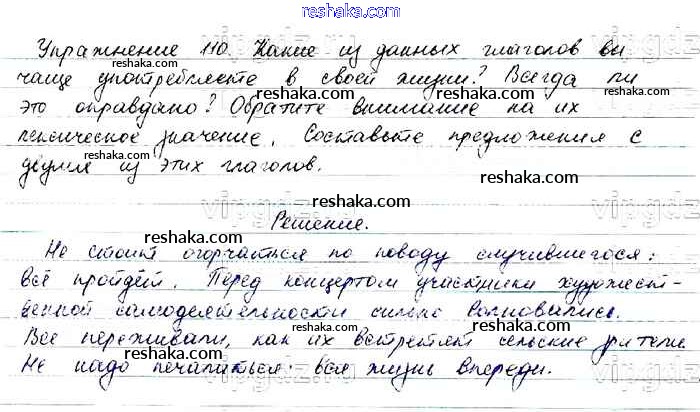 reshaka.com
Упражнение 110. Какие из данных глаголов вы
чаще употребляете в своей жизни? Всегда ли
это оправдано? Обратите внимание на их
лексическое значение. Составьте предложения с
двумя из этих глаголов.
Решение.
Не стоит огорчаться по поводу случившегося:
всё пройдёт. Перед концертом участники художест-
венной самодеятельности сильно волновались.
Все переживали, как их встретят сельские зрители.
Не надо печалиться: вся жизнь впереди.
reshaka.com